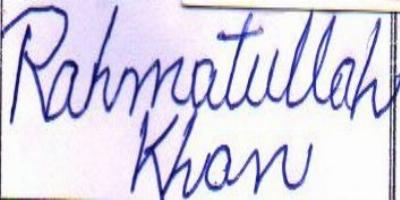 Rahmatullah
Khan